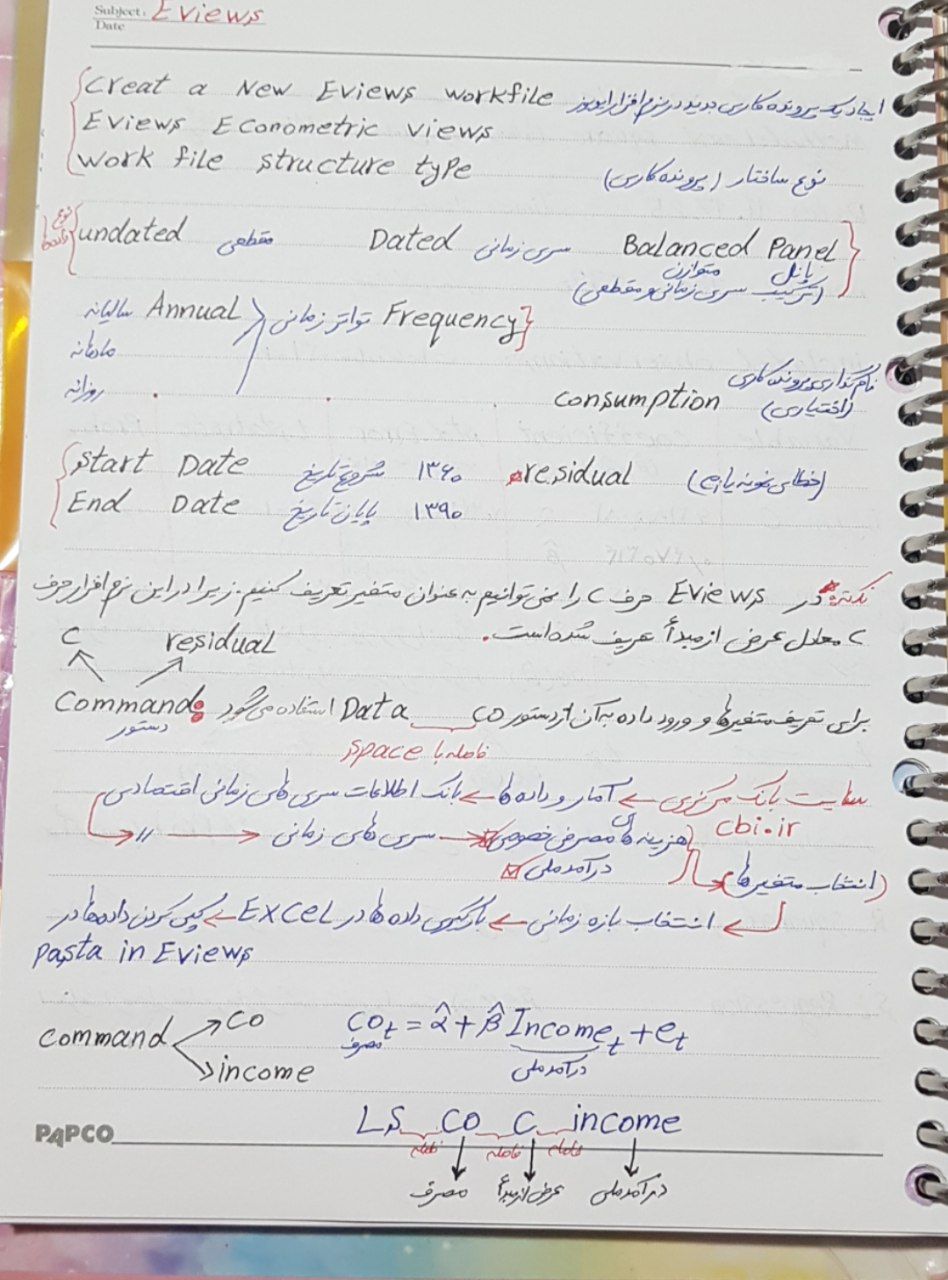 Subject: Eviews
Date
Creat a New Eviews workfile ایجاد یک پرونده کاری جدید در نرم افزار ایویوز
Eviews Econometric views
work file structure type نوع ساختار (پرونده کاری)
نوع داده‌ها undated مقطعی Dated سری زمانی Balanced Panel
پانل متوازن
(ترکیب سری زمانی و مقطعی)
سالیانه Annual تواتر زمانی Frequency
ماهانه
روزانه
consumption نام گذاری پرونده کاری (اختیاری)
start Date شروع تاریخ ۱۳۶۰ residual (خطای نمونه یا e)
End Date پایان تاریخ ۱۳۹۰
نکته: در Eviews حرف C را نمی توانیم به عنوان متغیر تعریف کنیم. زیرا در این نرم افزار حرف
C معادل عرض از مبدأ عریف شده است.
C residual
Command: برای تعریف متغیرها و ورود داده به آن از دستور Data co استفاده می‌گود
دستور
فاصله با space
سایت بانک مرکزی ← آمار و داده ها ← بانک اطلاعات سری های زمانی اقتصادی
cbi.ir هزینه های مصرفی خصوصی ← سری های زمانی ← //
(انتخاب متغیرها) درآمد ملی
← انتخاب بازه زمانی ← بارگیری داده ها در Excel ← کپی کردن داده‌ها در
Pasta in Eviews
command → co
→ income
COt = α̂ + β̂ Incomet + et
مصرف درآمد ملی
LS CO C income
فاصله فاصله فاصله
مصرف عرض از مبدأ درآمد ملی
PAPCO